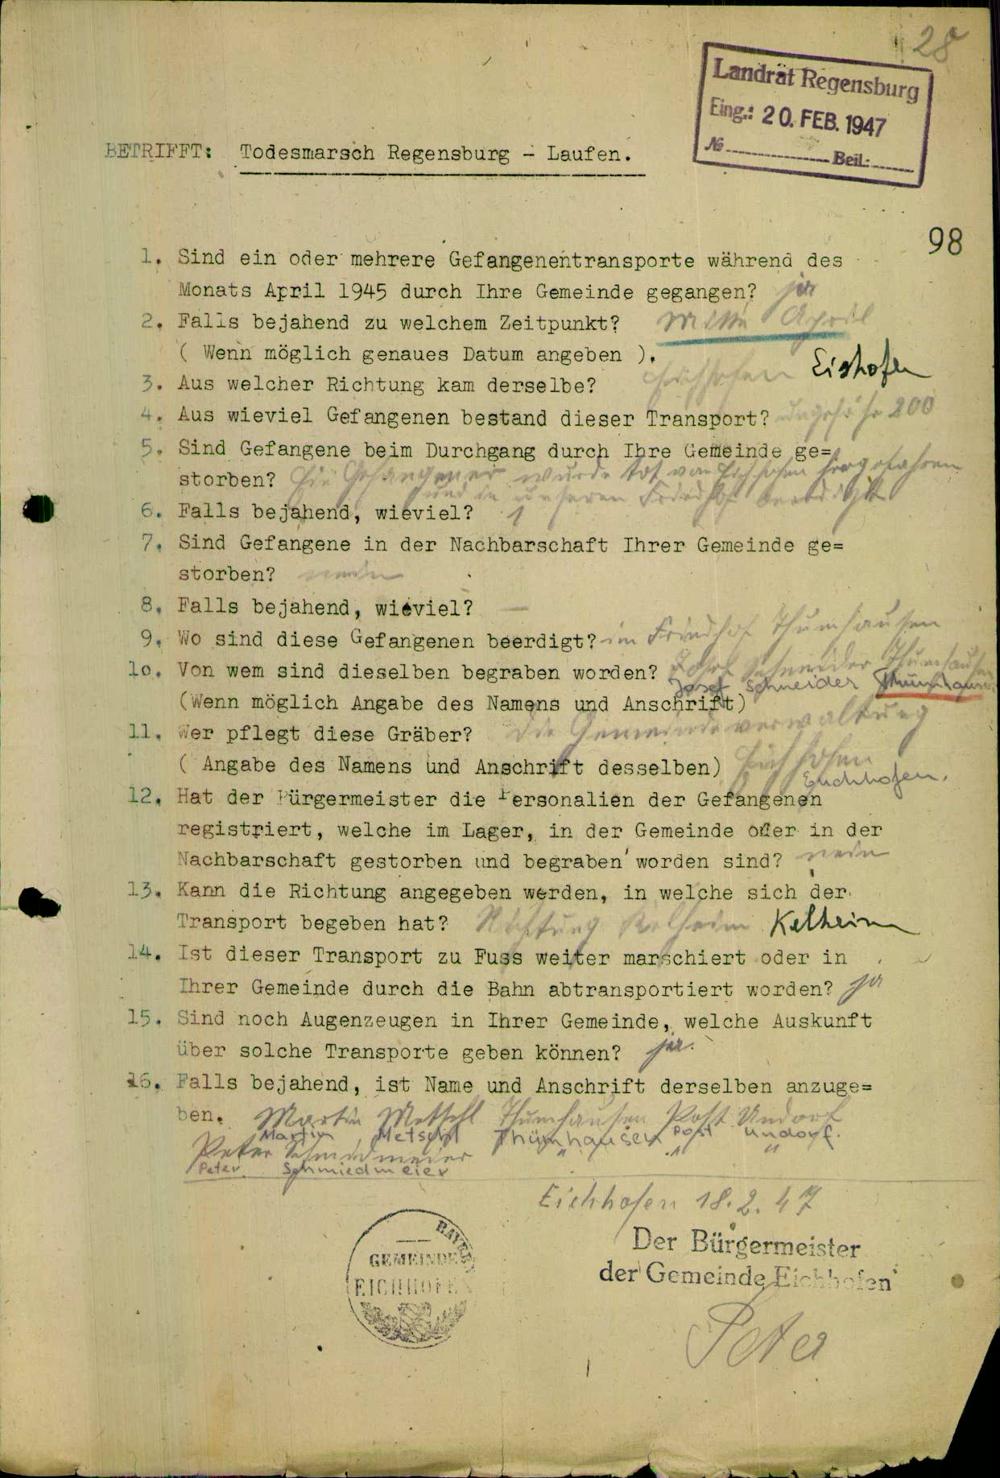 28
Landrat Regensburg
Eing.: 20. FEB. 1947
№ Beil.:
BETRIFFT: Todesmarsch Regensburg - Laufen.
98
1. Sind ein oder mehrere Gefangenentransporte während des
Monats April 1945 durch Ihre Gemeinde gegangen? ja
2. Falls bejahend zu welchem Zeitpunkt? Mitte April
( Wenn möglich genaues Datum angeben ).
3. Aus welcher Richtung kam derselbe? Eichhofen Eishofen
4. Aus wieviel Gefangenen bestand dieser Transport? ungefähr 200
5. Sind Gefangene beim Durchgang durch Ihre Gemeinde ge=
storben? Ein Gefangener wurde tot von Eichhofen hergefahren
und in unserem Friedhof beerdigt
6. Falls bejahend, wieviel? 1
7. Sind Gefangene in der Nachbarschaft Ihrer Gemeinde ge=
storben? nein
8. Falls bejahend, wieviel? —
9. Wo sind diese Gefangenen beerdigt? im Friedhof Thumhausen
1o. Von wem sind dieselben begraben worden? Josef Schneider Thumhausen
Josef Schneider Thumhausen
(Wenn möglich Angabe des Namens und Anschrift)
11. Wer pflegt diese Gräber? Die Gemeindeverwaltung
( Angabe des Namens und Anschrift desselben) Eichhofen
Eichhofen.
12. Hat der Bürgermeister die Personalien der Gefangenen
registriert, welche im Lager, in der Gemeinde oder in der
Nachbarschaft gestorben und begraben worden sind? nein
13. Kann die Richtung angegeben werden, in welche sich der
Transport begeben hat? Richtung Kelheim Kelheim
14. Ist dieser Transport zu Fuss weiter marschiert oder in
Ihrer Gemeinde durch die Bahn abtransportiert worden? ja
15. Sind noch Augenzeugen in Ihrer Gemeinde, welche Auskunft
über solche Transporte geben können? ja.
16. Falls bejahend, ist Name und Anschrift derselben anzuge=
ben. Martin Metschl Thumhausen Post Undorf
Martin Metschl Thümhausen Post Undorf.
Peter Schmiedmeier " " "
Peter Schmiedmeier
Eichhofen 18.2.47
Der Bürgermeister
der Gemeinde Eichhofen
BAYERN
GEMEINDE
EICHHOFEN